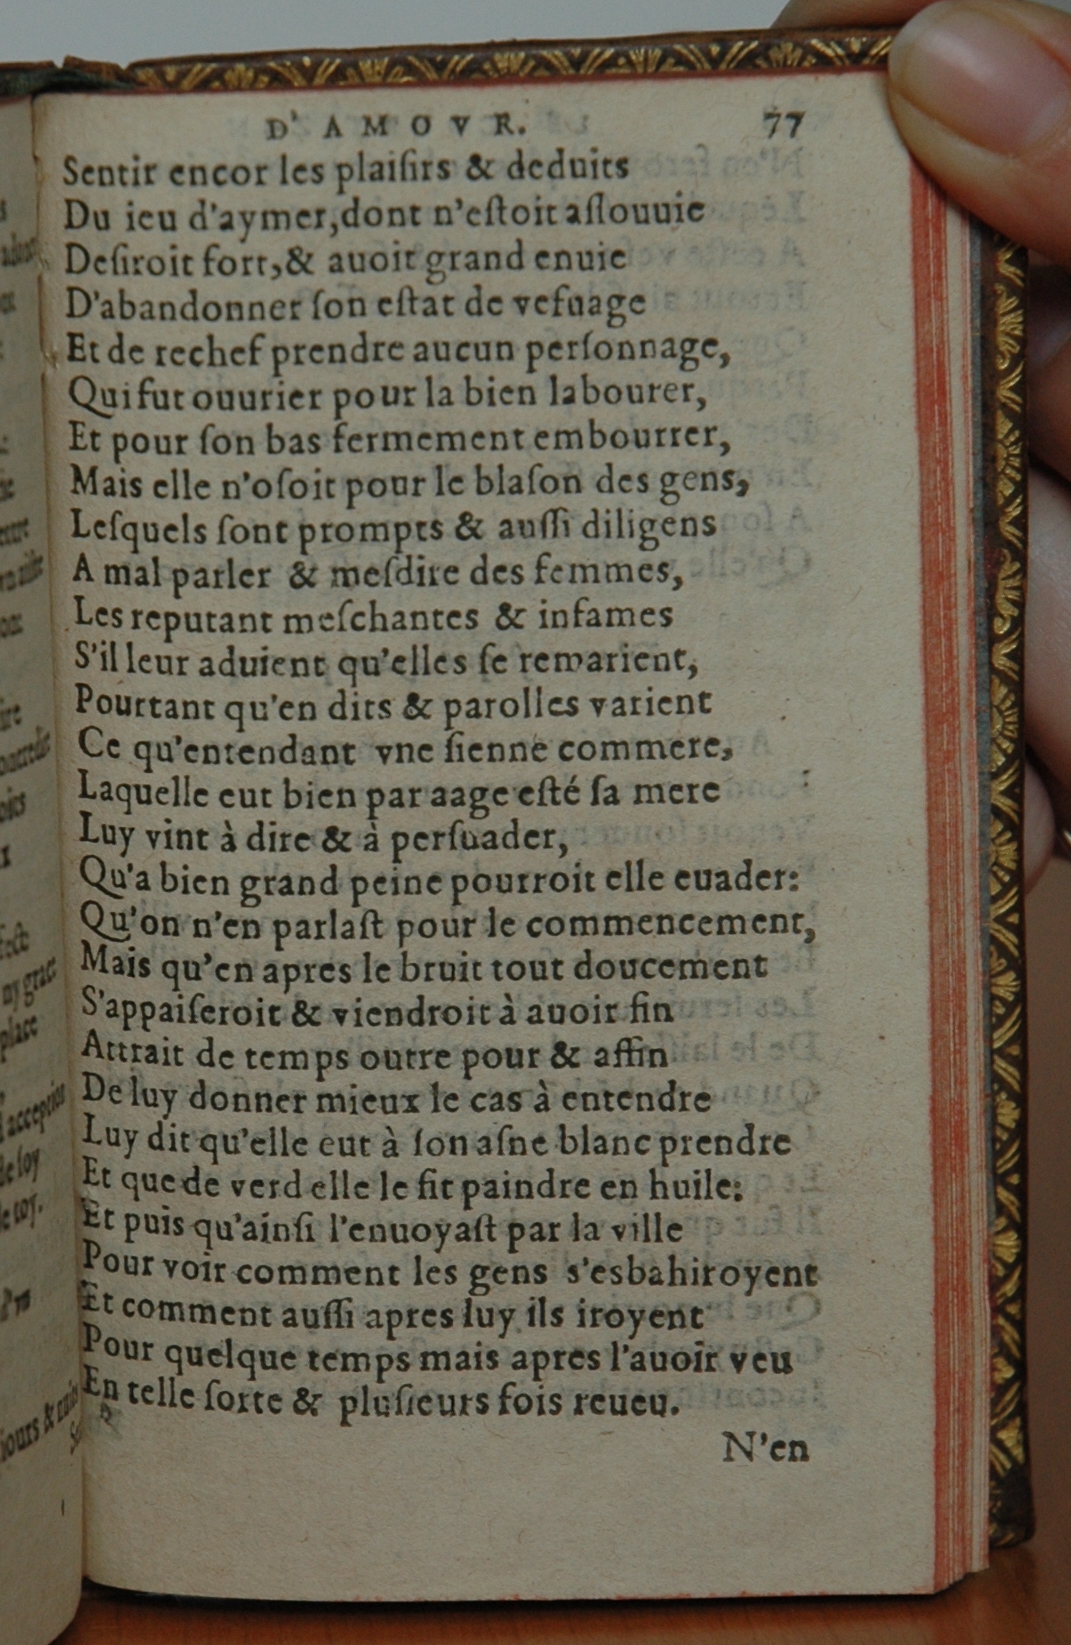 D' AMOVR. 77
Sentir encor les plaiſirs & deduits
Du ieu d'aymer,dont n'eſtoit aſſouuie
Deſiroit fort,& auoit grand enuie
D'abandonner ſon eſtat de vefuage
Et de rechef prendre aucun perſonnage,
Qui fut ouurier pour la bien labourer,
Et pour ſon bas fermement embourrer,
Mais elle n'oſoit pour le blaſon des gens,
Leſquels ſont prompts & auſſi diligens
A mal parler & meſdire des femmes,
Les reputant meſchantes & infames
S'il leur aduient qu'elles ſe remarient,
Pourtant qu'en dits & parolles varient
Ce qu'entendant vne ſienne commere,
Laquelle eut bien par aage eſté ſa mere
Luy vint à dire & à perſuader,
Qu'a bien grand peine pourroit elle euader:
Qu'on n'en parlaſt pour le commencement,
Mais qu'en apres le bruit tout doucement
S'appaiſeroit & viendroit à auoir fin
Attrait de temps outre pour & affin
De luy donner mieux le cas à entendre
Luy dit qu'elle eut à ſon aſne blanc prendre
Et que de verd elle le fit paindre en huile:
Et puis qu'ainſi l'enuoyaſt par la ville
Pour voir comment les gens s'esbahiroyent
Et comment auſſi apres luy ils iroyent
Pour quelque temps mais apres l'auoir veu
En telle ſorte & pluſieurs fois reueu.
N'en